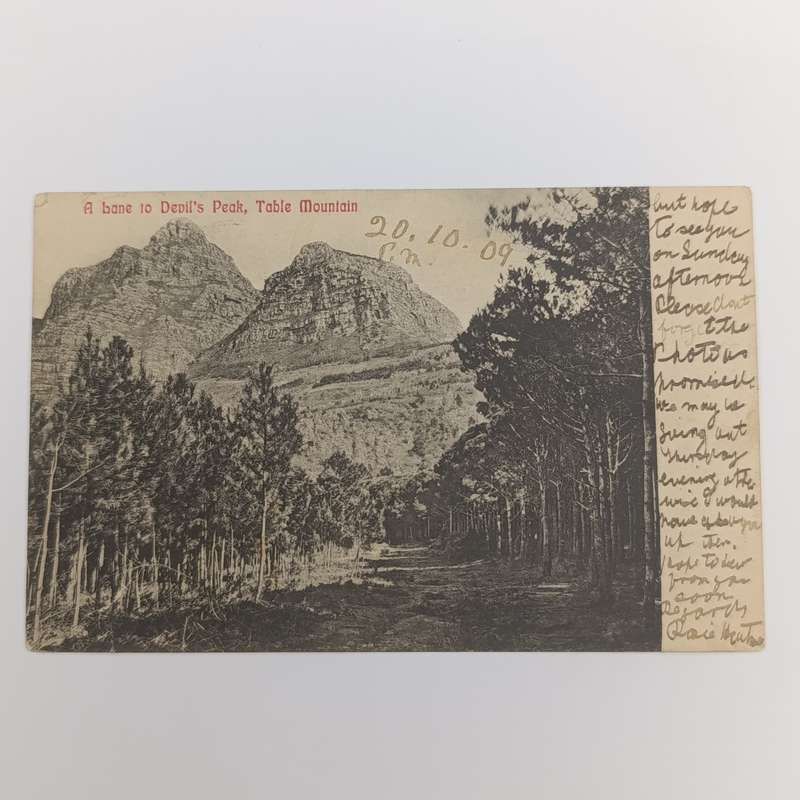 A Lane to Devil's Peak, Table Mountain
20.10.09
P.M.
but hope
to see you
on Sunday
afternoon
Please dont
forget the
Photo as
promised.
We may be
going out
Thursday
evening other
wise I would
have asked you
up then.
hope to hear
from you
soon
Regards
Rosie